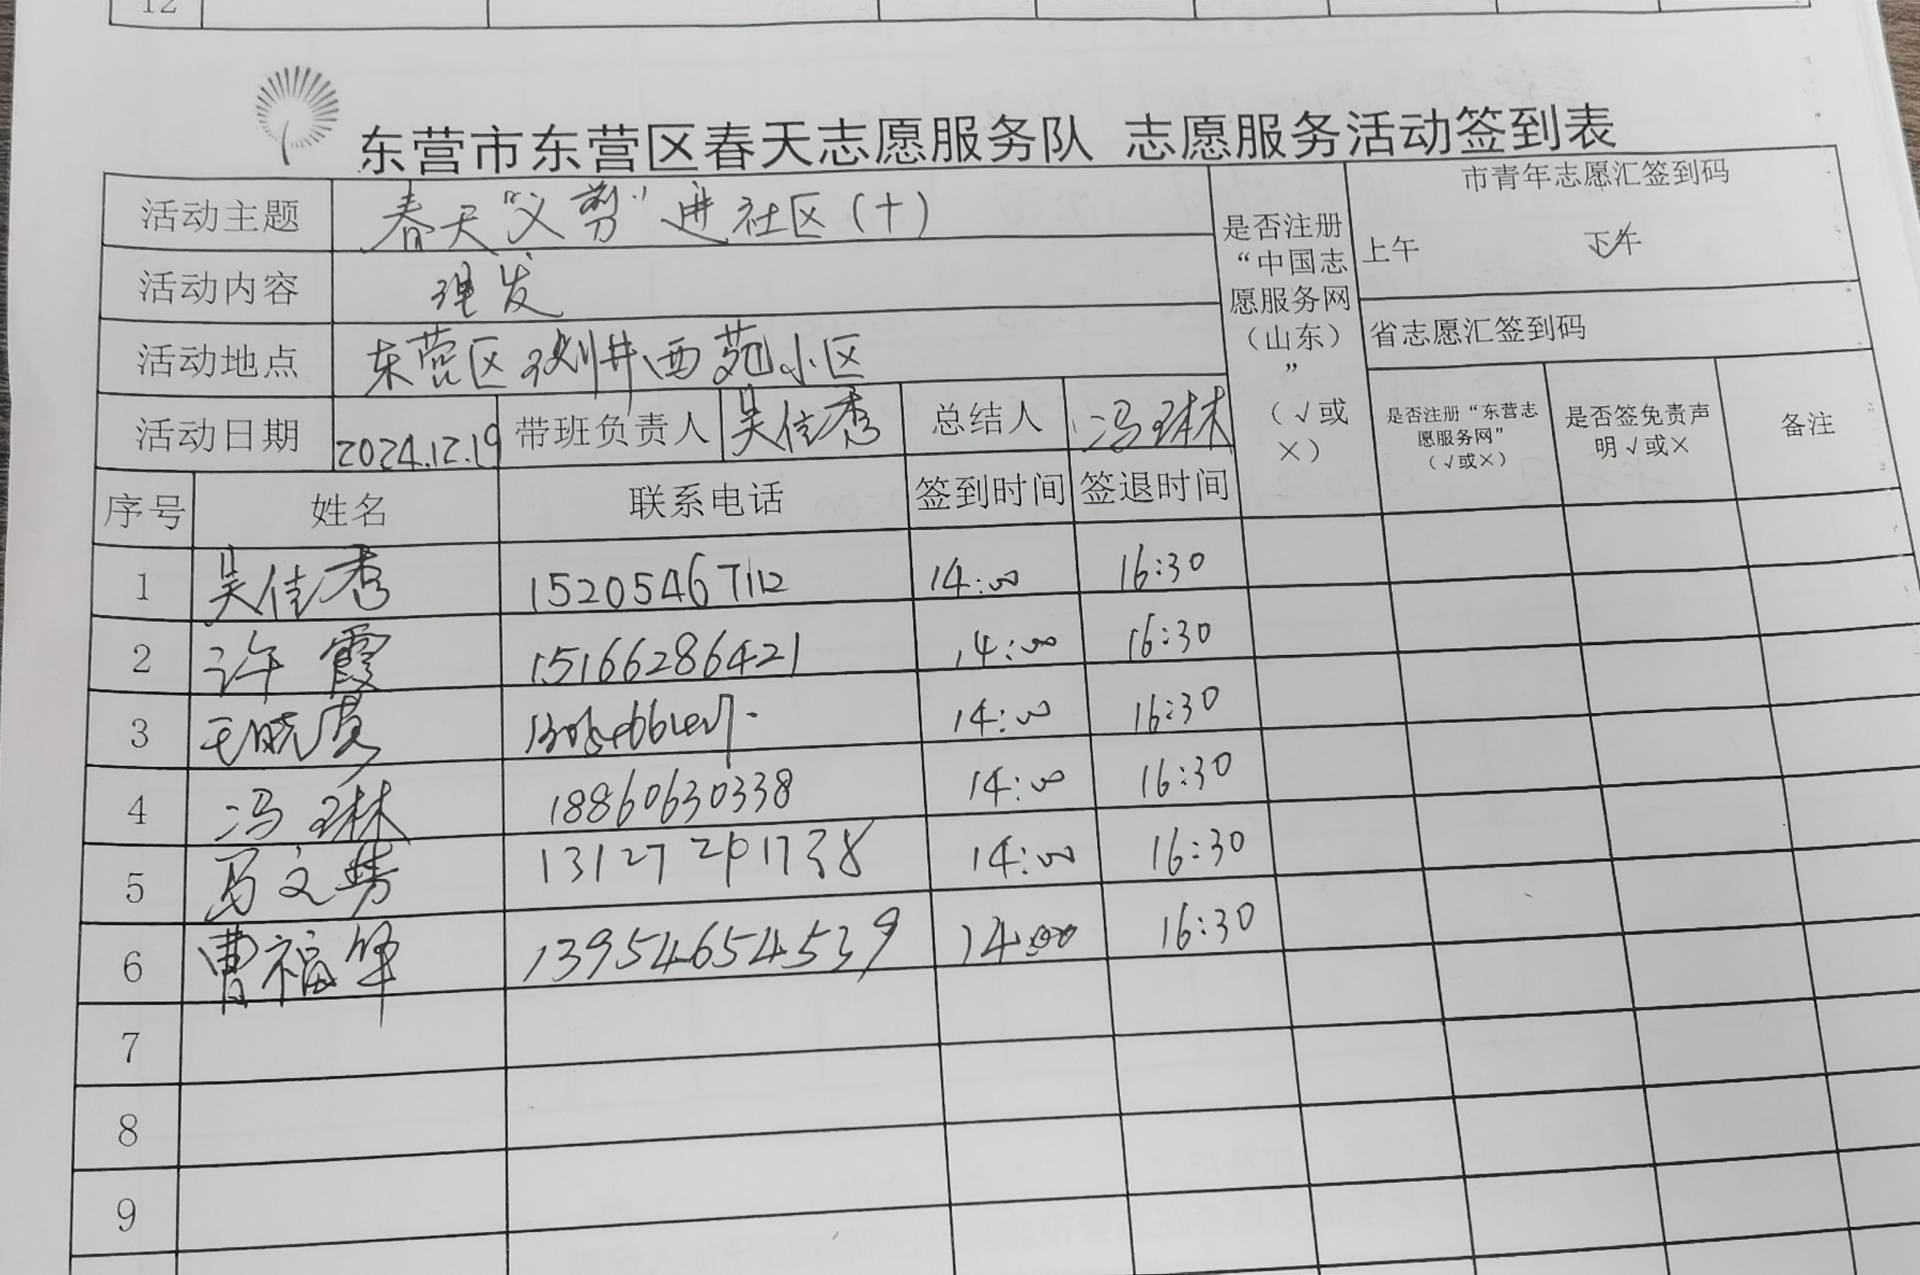 12
东营市东营区春天志愿服务队 志愿服务活动签到表
活动主题 春天“义剪”进社区(十)
活动内容 理发
活动地点 东营区 西苑小区
活动日期 2024.12.19 带班负责人 吴佳秀 总结人 冯琳
是否注册
“中国志
愿服务网
(山东)
”
(√或
×)
市青年志愿汇签到码
上午 下午
省志愿汇签到码
是否注册“东营志
愿服务网”
(√或×)
是否签免责声
明√或×
备注
序号 姓名 联系电话 签到时间 签退时间
1 吴佳秀 15205467112 14:00 16:30
2 许霞 15166286421 14:00 16:30
3 王晓 14:00 16:30
4 冯琳 18860630338 14:00 16:30
5 马文 14:00 16:30
6 曹福华 13954654539 14:00 16:30
7
8
9